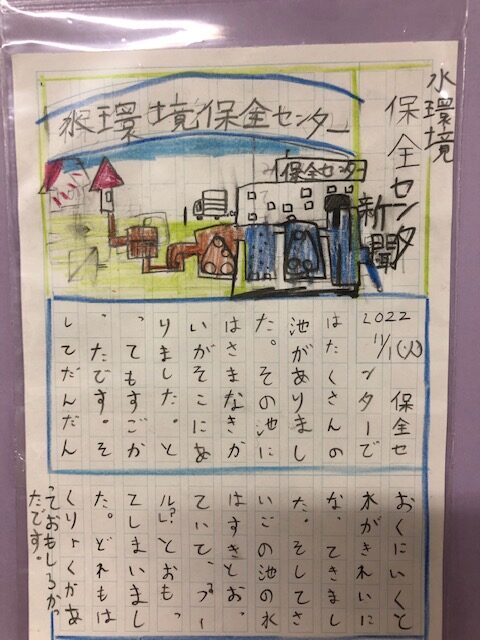 水環境保全センター
保全センター
水環境
保全センタ
新聞
2022
11/1(火)
保全セ
ンターで
はたくさんの
池がありまし
た。その池に
はさまなきか
いがそこにあ
りました。と
ってもすごか
ったです。そ
してだんだん
おくにいくと
水がきれいに
なってきまし
た。そしてさ
いごの池の水
はすきとおっ
ていて、「プー
ル?」とおもっ
てしまいまし
た。どれもは
くりょくがあ
っておもしろかっ
たです。